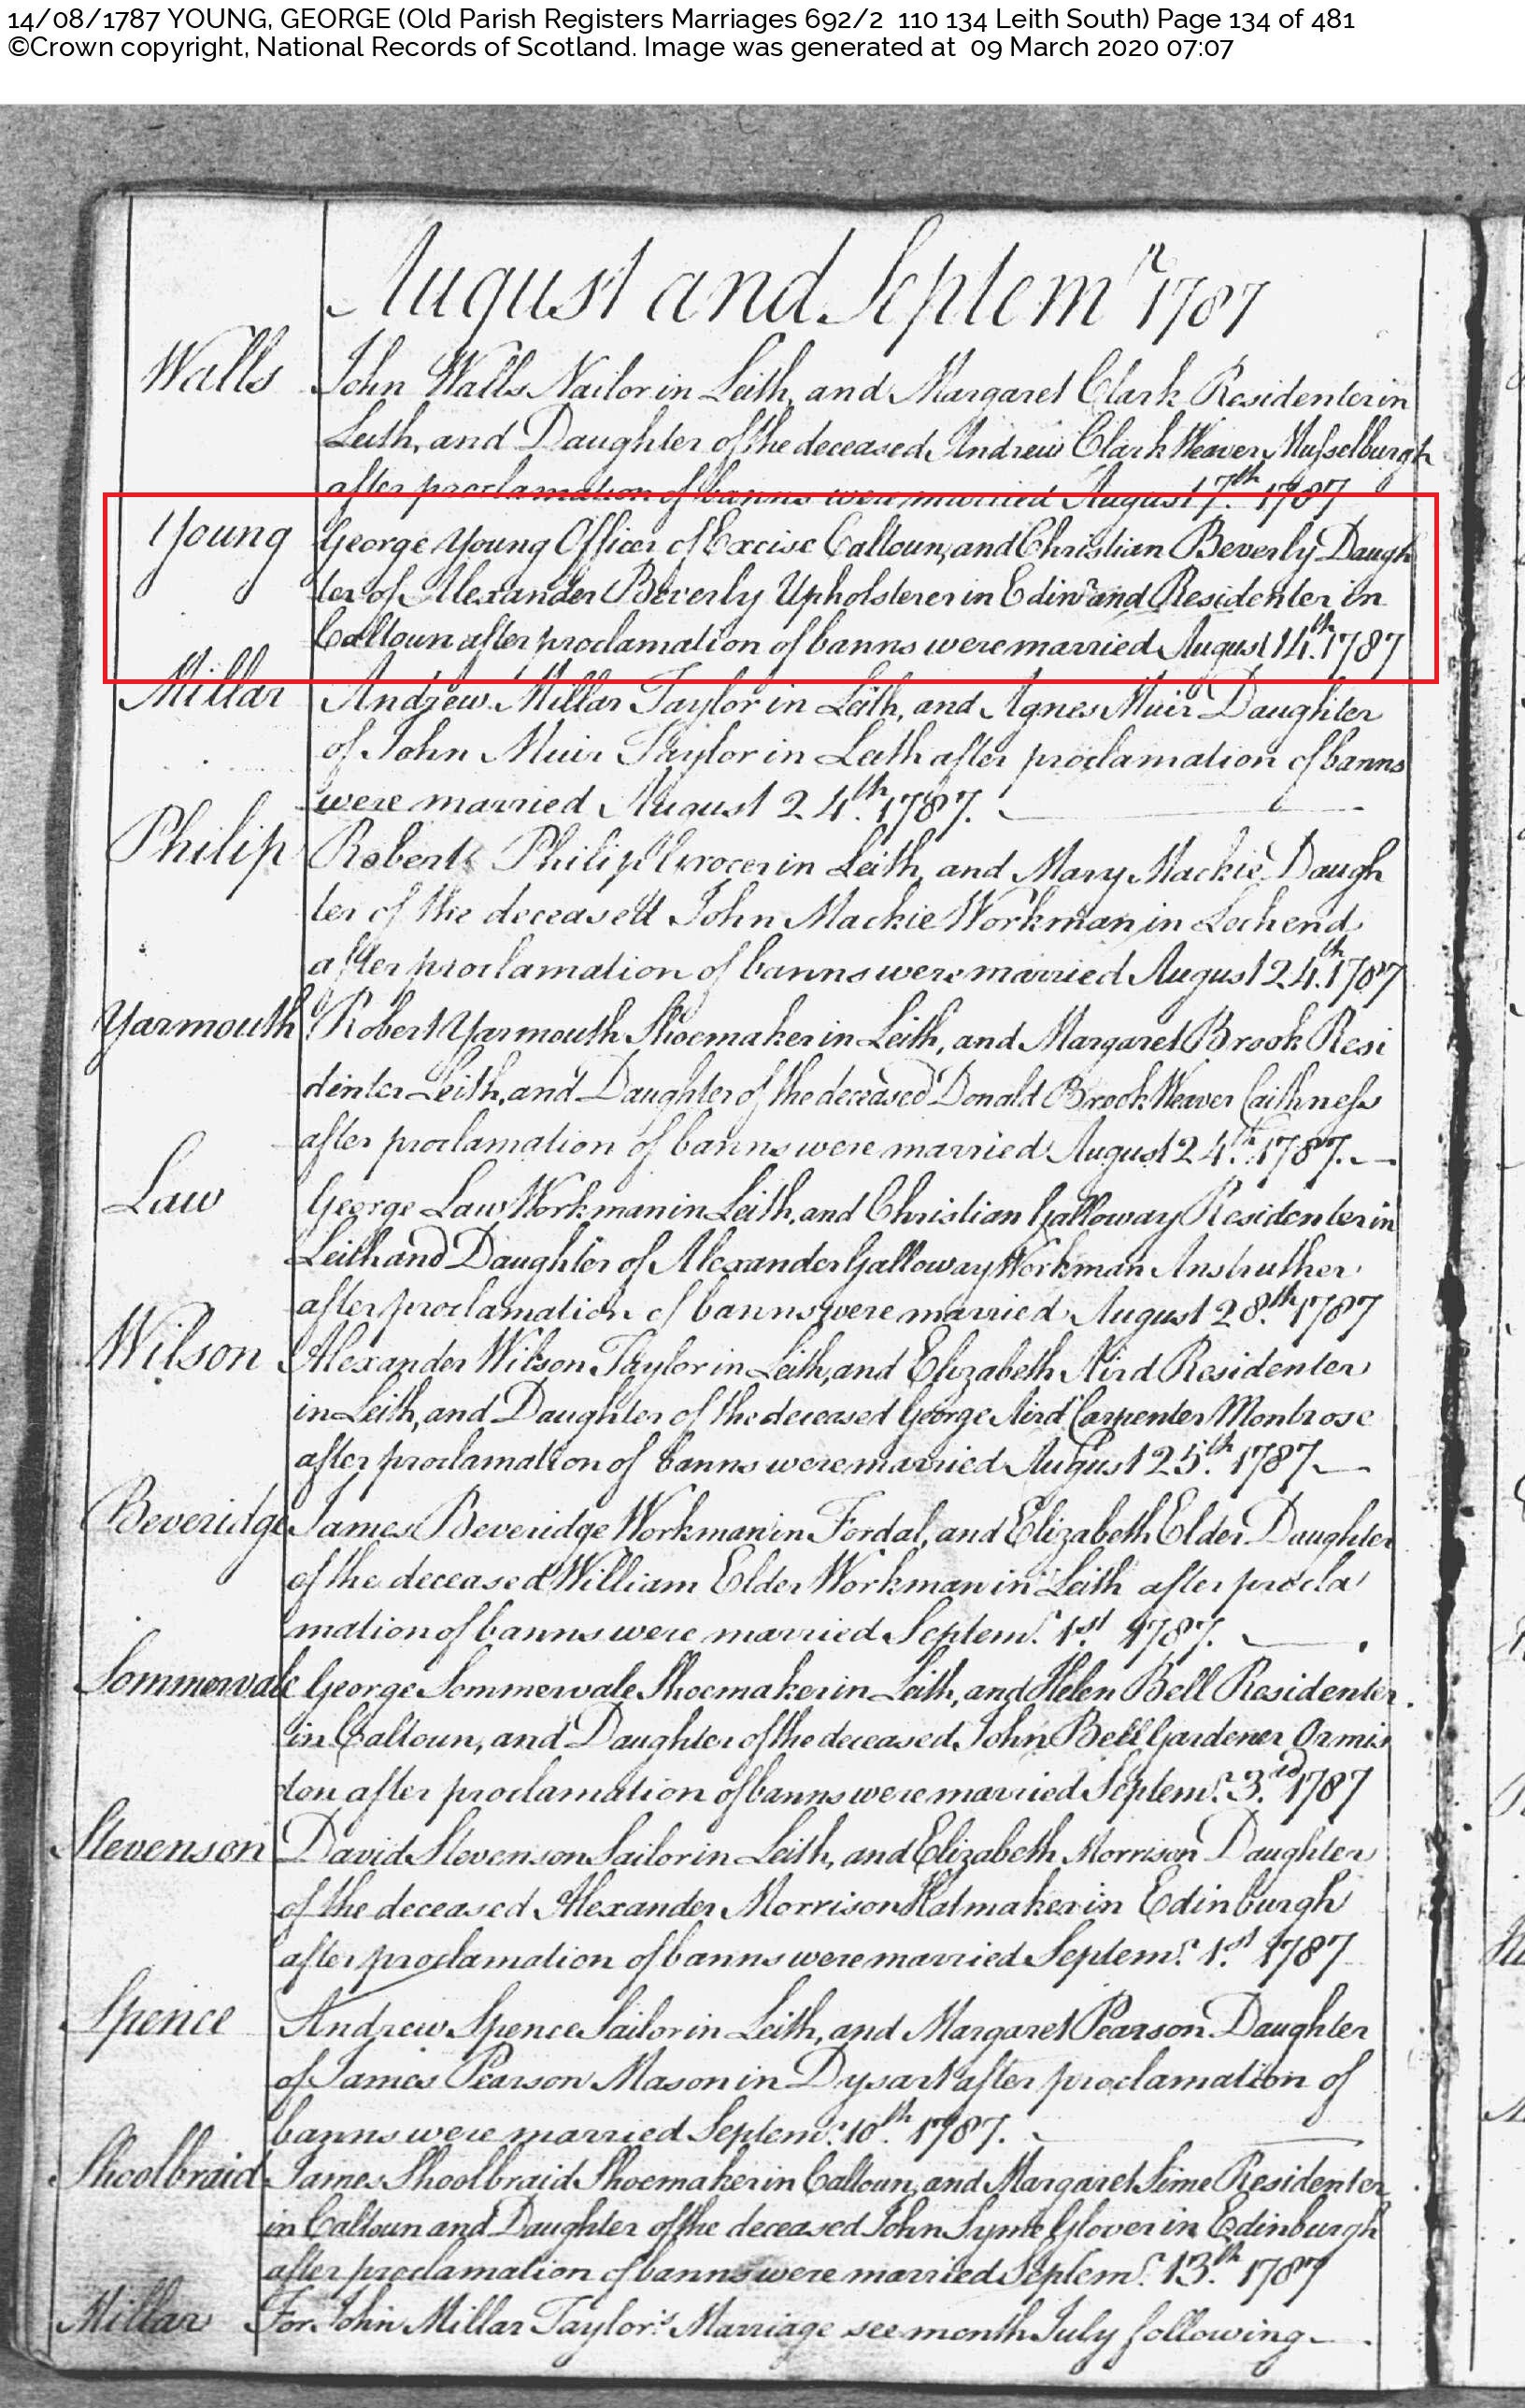 14/08/1787 YOUNG, GEORGE (Old Parish Registers Marriages 692/2 110 134 Leith South) Page 134 of 481
©Crown copyright, National Records of Scotland. Image was generated at 09 March 2020 07:07
August and Septemr 1787
Walls John Walls Nailor in Leith, and Margaret Clark Residenter in
Leith, and Daughter of the deceased Andrew Clark Weaver Musselburgh
after proclamation of banns were married August 7th 1787
Young George Young Officer of Excise Caltoun, and Christian Beverly Daugh
ter of Alexander Beverly Upholsterer in Edinr and Residenter in
Caltoun after proclamation of banns were married August 14th 1787
Millar Andrew Millar Taylor in Leith, and Agnes Muir Daughter
of John Muir Taylor in Leith after proclamation of banns
were married August 24th. 1787.
Philip Robert Philip Grocer in Leith, and Mary Mackie Daugh
ter of the deceased John Mackie Workman in Lochend
after proclamation of banns were married August 24th. 1787
Yarmouth Robert Yarmouth Shoemaker in Leith, and Margaret Brook Resi
denter Leith, and Daughter of the deceased Donald Brook Weaver Caithness
after proclamation of banns were married August 24th. 1787.
Law George Law Workman in Leith, and Christian Galloway Residenter in
Leith and Daughter of Alexander Galloway Workman Anstruther
after proclamation of banns were married August 28th. 1787
Wilson Alexander Wilson Taylor in Leith, and Elizabeth Aird Residenter
in Leith, and Daughter of the deceased George Aird Carpenter Montrose
after proclamation of banns were married August 25th. 1787
Beveridge James Beveridge Workman in Fordal, and Elizabeth Elder Daughter
of the deceased William Elder Workman in Leith after procla
mation of banns were married Septemr. 1st 1787.
Sommervale George Sommervale Shoemaker in Leith, and Helen Bell Residenter
in Caltoun, and Daughter of the deceased John Bell Gardener Ormis
ton after proclamation of banns were married Septemr. 3rd. 1787
Stevenson David Stevenson Sailor in Leith, and Elizabeth Morrison Daughter
of the deceased Alexander Morrison Hatmaker in Edinburgh
after proclamation of banns were married Septemr. 1st 1787
Spence Andrew Spence Sailor in Leith, and Margaret Pearson Daughter
of James Pearson Mason in Dysart after proclamation of
banns were married Septemr. 10th. 1787.
Shoolbraid James Shoolbraid Shoemaker in Caltoun, and Margaret Sime Residenter
in Caltoun and Daughter of the deceased John Syme Glover in Edinburgh
after proclamation of banns were married Septemr. 13th. 1787
Millar For John Millar Taylor's Marriage see month July following